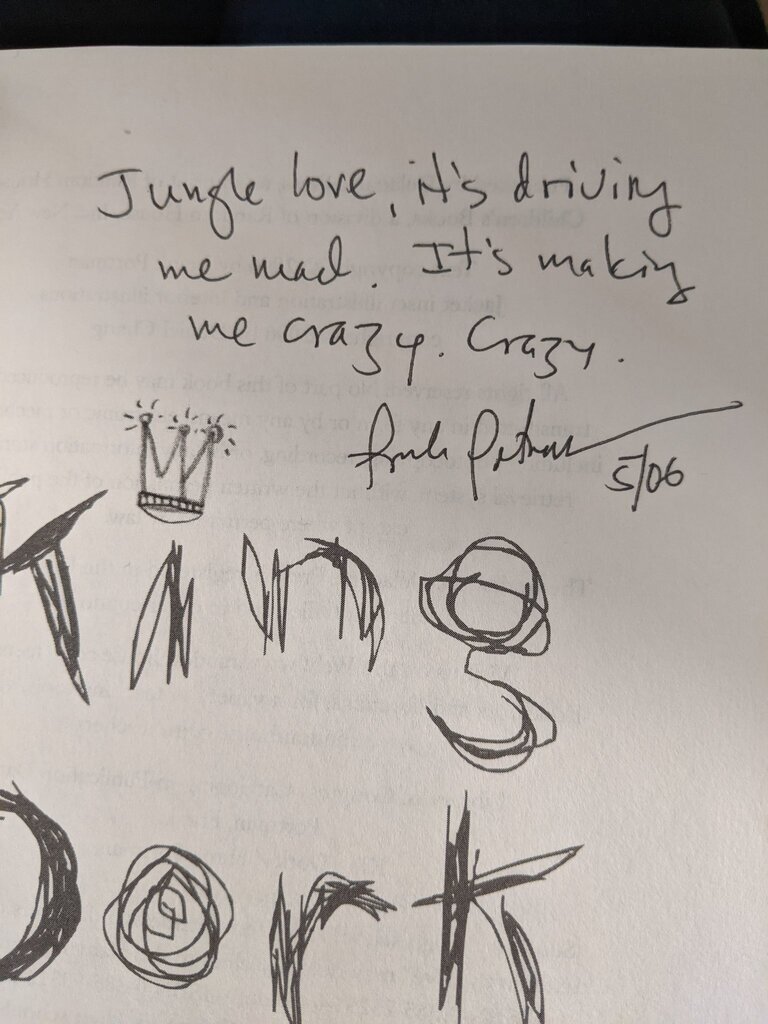 Jungle love, it's driving
me mad. It's making
me crazy. Crazy.
Frank Portman 5/06
King
Dork